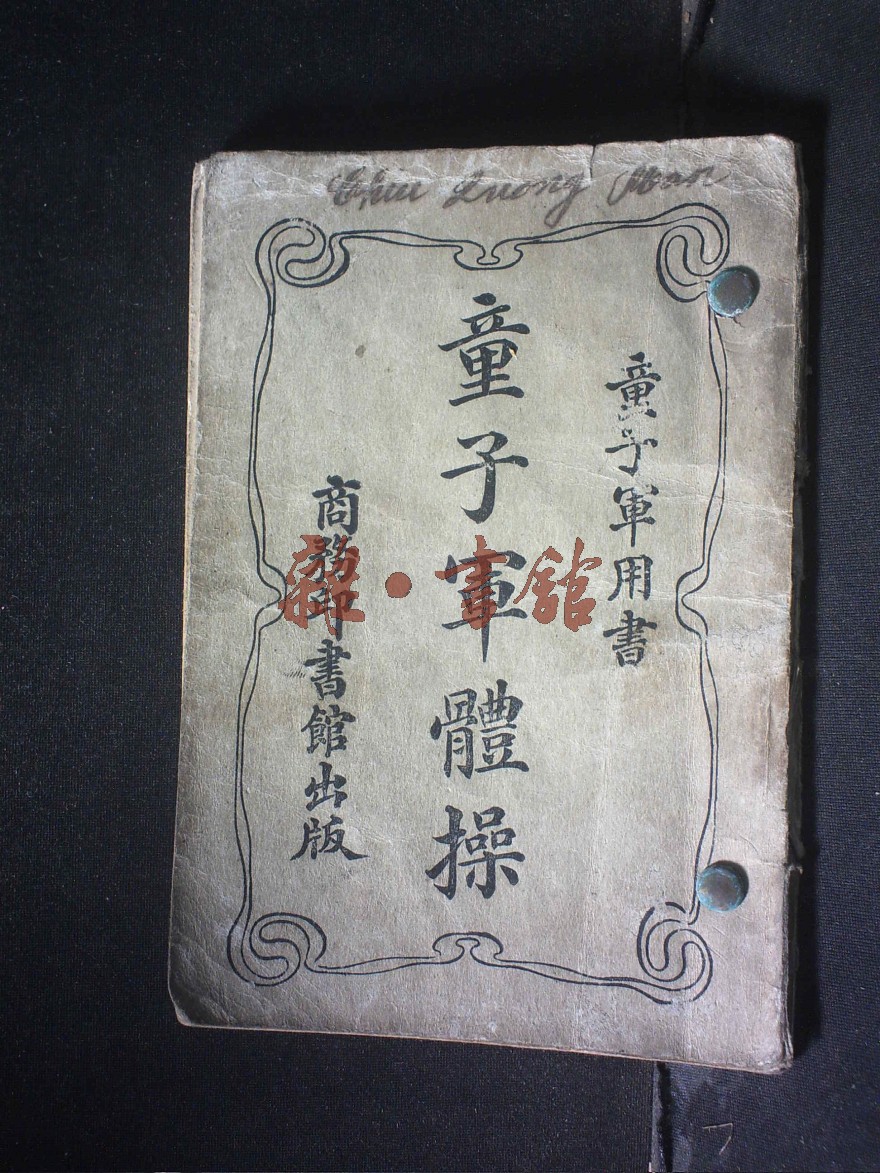 Chiu Luong Man
童子軍用書
童子軍體操
商務印書館出版
雜·書館